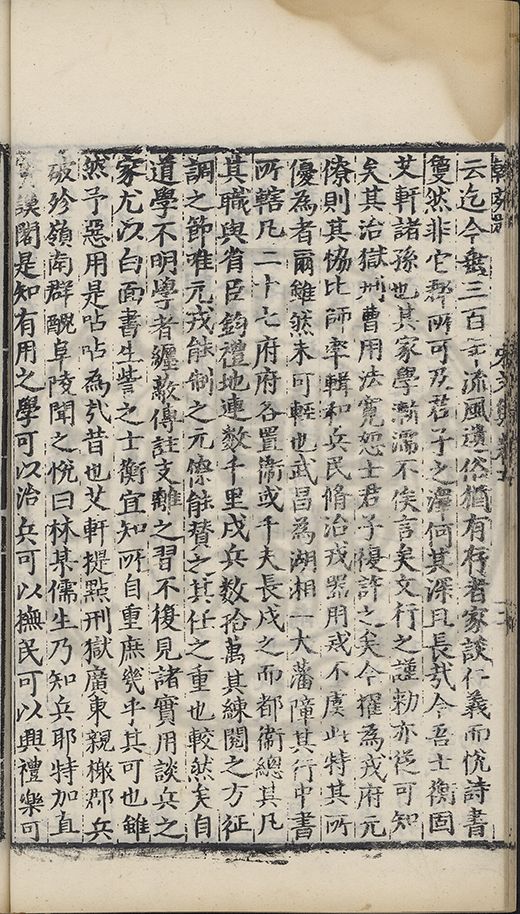 云迄今盖三百年流風遺俗猶有存者家談仁義而悅詩書
雙然非它郡所可及君子之澤何其深且長哉今吾士衡固
艾軒諸孫也其家學漸濡不俟言矣文行之謹勑亦從可知
矣其治獄刑曹用法寬恕士君子復許之矣今擢為戎府元
僚則其協比師率輯和兵民脩治戎器用戒不虞此特其所
優為者爾雖然未可輕也武昌為湖相一大藩障其行中書
所轄凡二十七府府各置衞或千夫長戍之而都衞總其凡
其職與省臣鈞禮地連数千里戍兵数拾萬其練閱之方征
調之節唯元戎能制之元僚能賛之其任之重也較然矣自
道學不明學者纏蔽傳註支離之習不復見諸實用談兵之
家尤以白面書生訾之士衡宜知所自重庶幾乎其可也雖
然予惡用是呫呫為㢤昔也艾軒提點刑獄廣東親檄郡兵
破殄嶺南群醜阜陵聞之悅曰林某儒生乃知兵耶特加直
謨閣是知有用之學可以治兵可以撫民可以興禮樂可